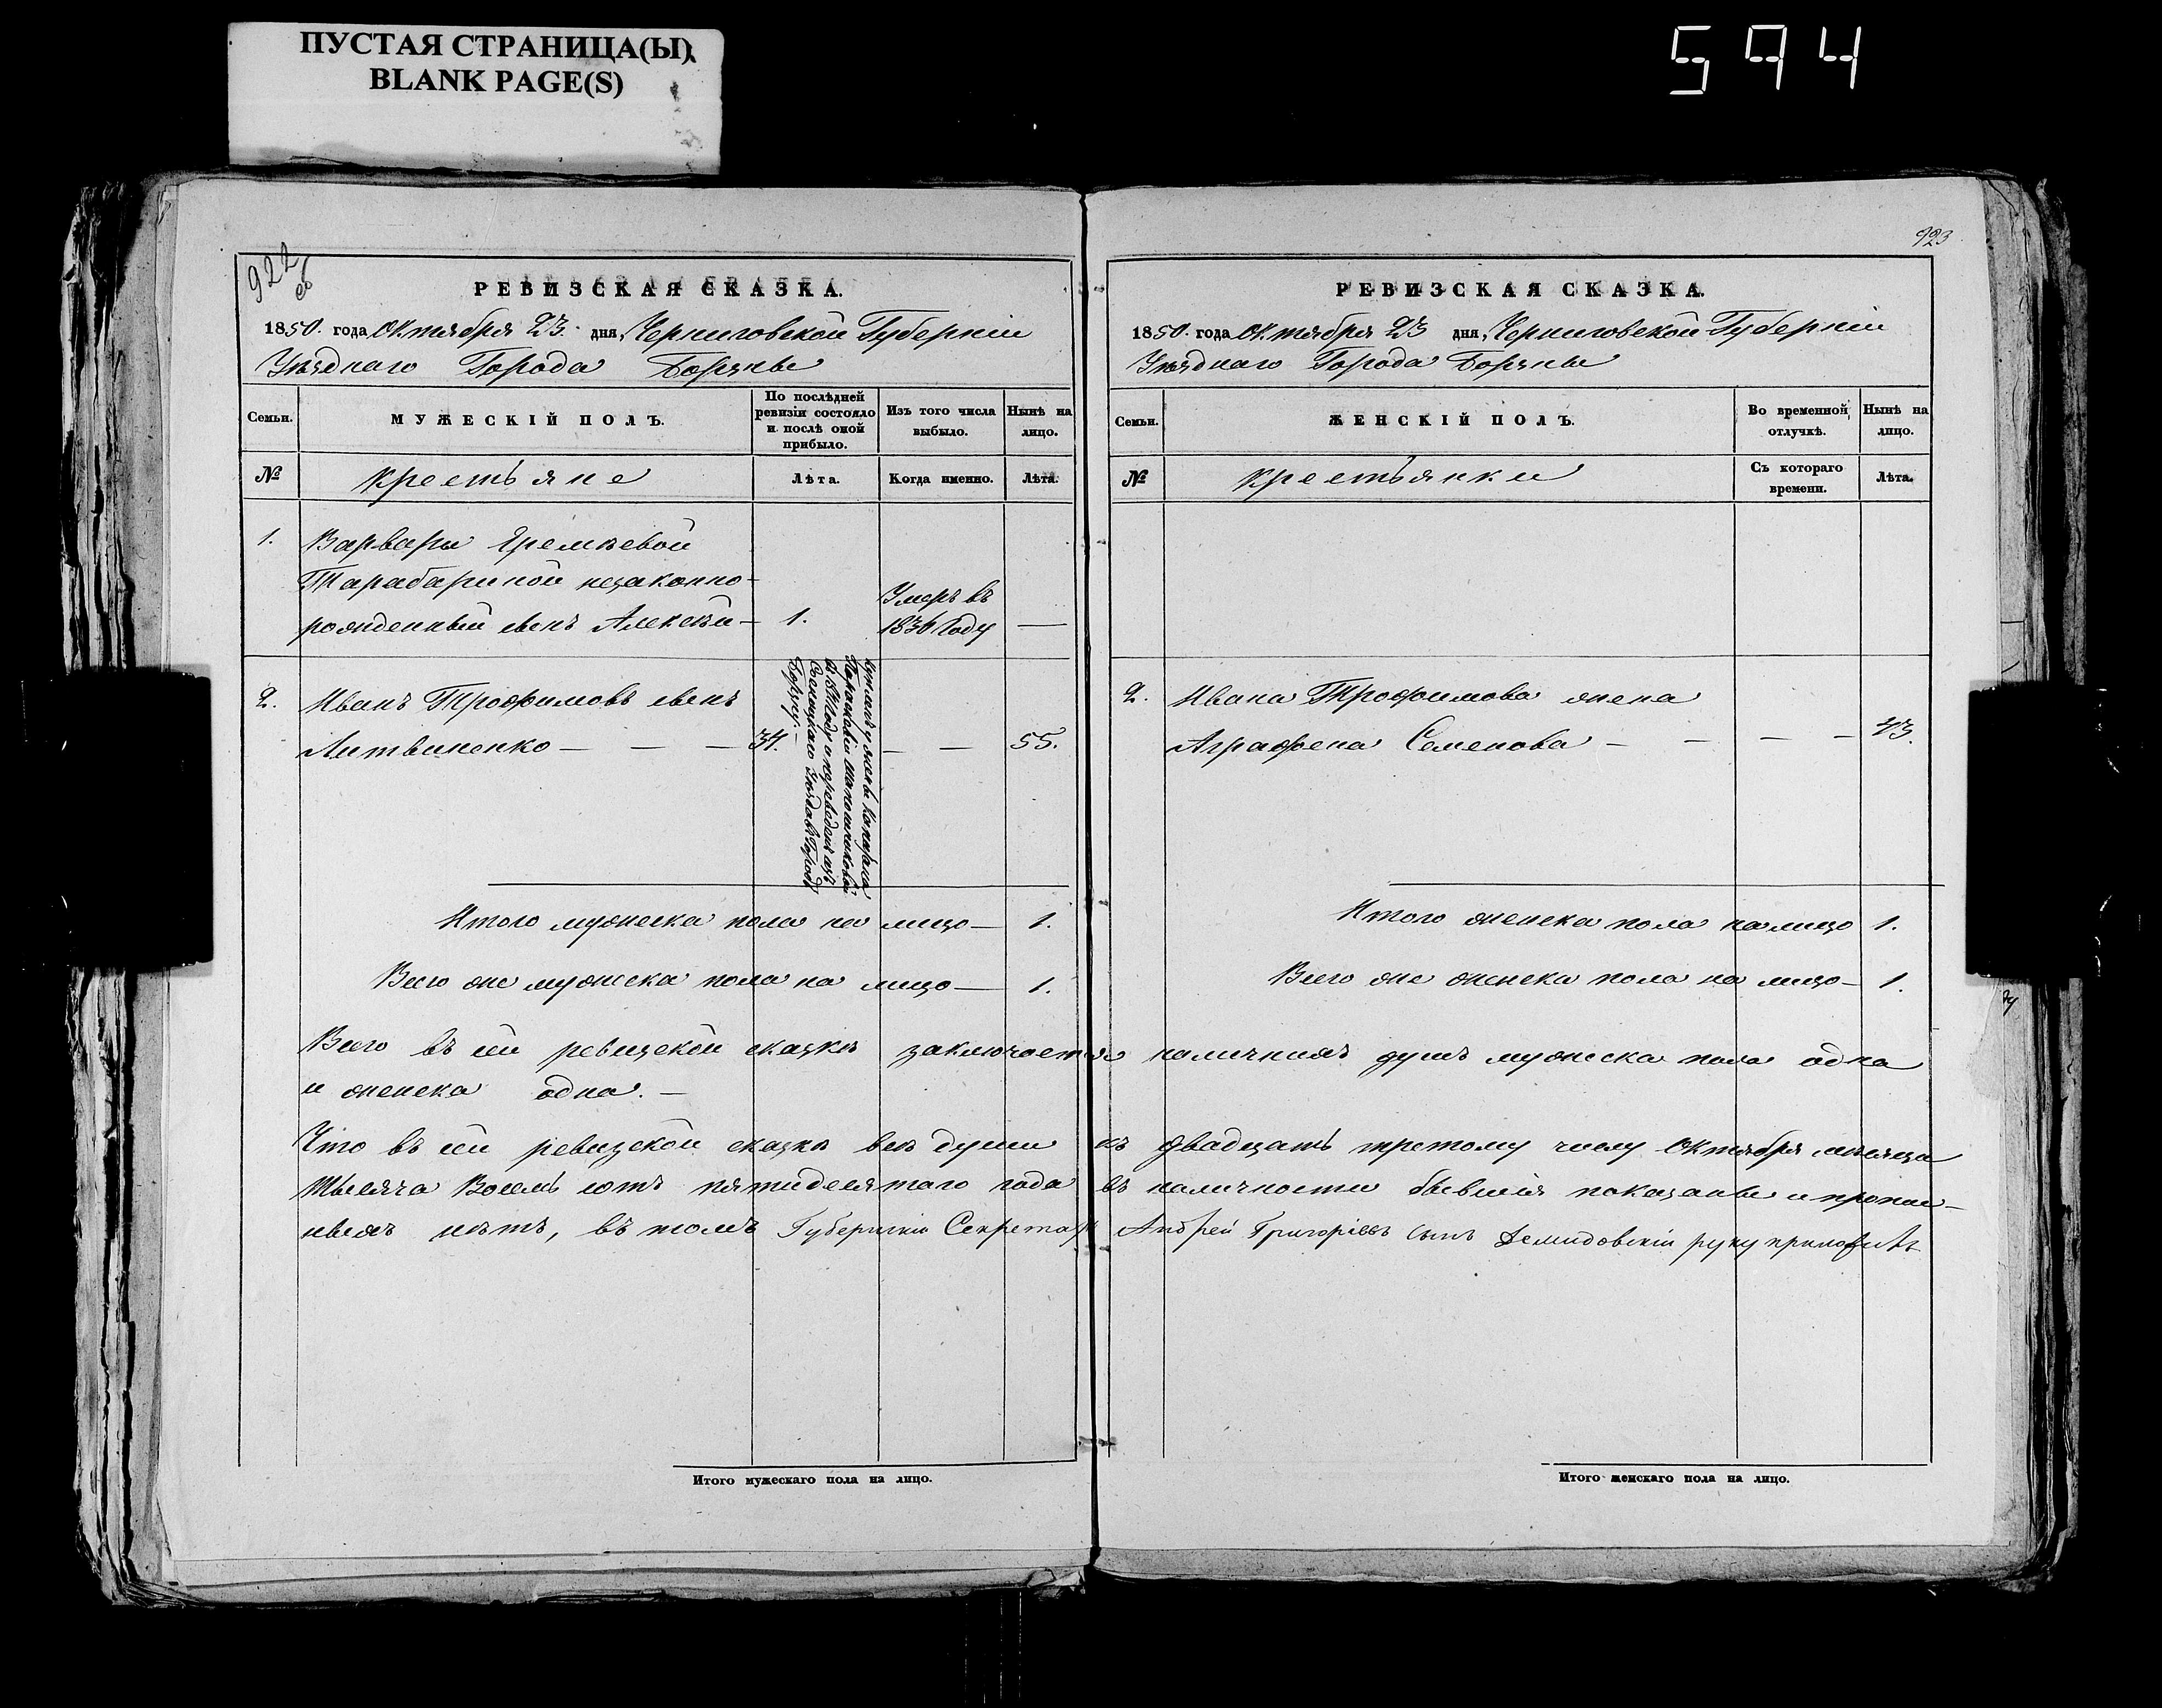 ПУСТАЯ СТРАНИЦА(Ы)
BLANK PAGE(S)
594
922
об
РЕВИЗСКАЯ СКАЗКА.
1850. года Октября 23. дня, Черниговской Губерніи
Уѣзднаго Города Борзны
Семьи.
МУЖЕСКІЙ ПОЛЪ.
По послѣдней
ревизіи состояло
и послѣ оной
прибыло.
Изъ того числа
выбыло.
Нынѣ на
лицо.
№
Крестьяне
Лѣта.
Когда именно.
Лѣта.
1.
Варвары Яремѣевой
Тарабариной незаконно-
рожденный сынъ Алексѣй —
1.
Умеръ въ
1836 Году
—
2.
Иванъ Трофимовъ сынъ
Литвиненко — — —
34.
Купленъ у жены
въ году и переведенъ изъ
Сосницкаго Уѣзда въ Городъ
Борзну. —
— —
55.
Итого мужеска пола на лицо —
1.
Всего же мужеска пола на лицо —
1.
923
РЕВИЗСКАЯ СКАЗКА.
1850. года Октября 23 дня, Черниговской Губерніи
Уѣзднаго Города Борзны
Семьи.
ЖЕНСКІЙ ПОЛЪ.
Во временной
отлучкѣ.
Нынѣ на
лицо.
№
Крестьянки
Съ котораго
времени.
Лѣта.
2.
Ивана Трофимова жена
Аграфена Семенова — — — —
43.
Итого женска пола на лицо
1.
Всего же женска пола на лицо —
1.
Всего въ сей ревизской сказкѣ заключается наличныхъ душъ мужеска пола одна
и женска одна. —
Что въ сей ревизской сказкѣ всѣ души къ двадцать третому числу Октября мѣсяца
тысяча восемь сотъ пятидесятаго года въ наличности бывшія показаны и пропис-
ныхъ нѣтъ, въ томъ Губернскій Секретарь Андрей Григоріевъ сынъ Демидовскій руку приложилъ
Итого мужескаго пола на лицо.
Итого женскаго пола на лицо.